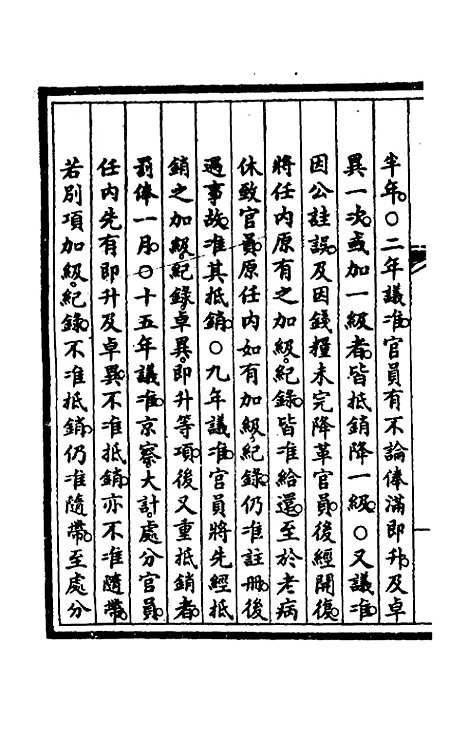 半年。○二年議准。官員有不論俸滿即升。及卓
異一次。或加一級者。皆抵銷降一級。○又議准。
因公詿誤。及因錢糧未完降革官員。後經開復。
將任內原有之加級。紀錄。皆准給還。至於老病
休致官員。原任內如有加級。紀錄。仍准註冊。後
遇事故。准其抵銷。○九年議准。官員將先經抵
銷之加級。紀錄。卓異。即升等項。後又重抵銷者。
罰俸一月。○十五年議准。京察大計。處分官員。
任內先有即升及卓異。不准抵銷。亦不准隨帶。
若別項加級。紀錄。不准抵銷。仍准隨帶。至處分